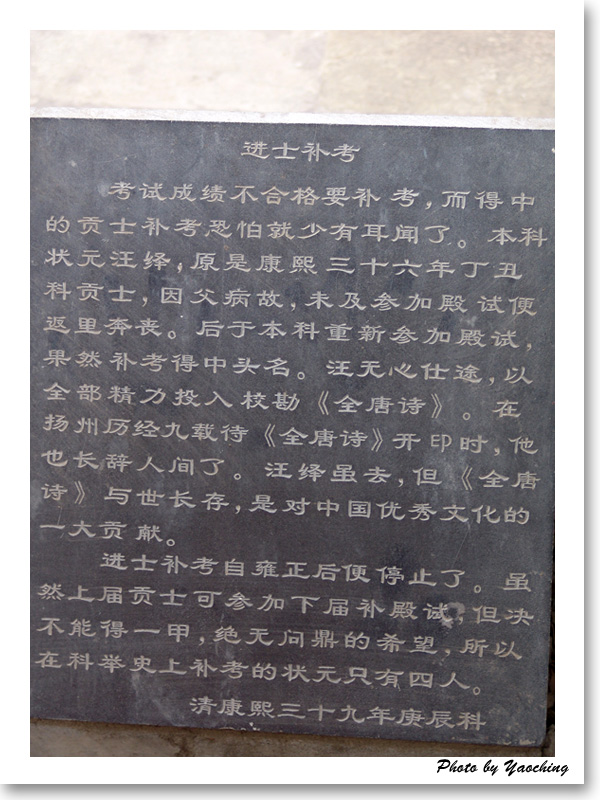 进士补考
考试成绩不合格要补考，而得中
的贡士补考恐怕就少有耳闻了。本科
状元汪绎，原是康熙三十六年丁丑
科贡士，因父病故，未及参加殿试便
返里奔丧。后于本科重新参加殿试，
果然补考得中头名。汪无心仕途，以
全部精力投入校勘《全唐诗》。在
扬州历经九载待《全唐诗》开印时，他
也长辞人间了。汪绎虽去，但《全唐
诗》与世长存，是对中国优秀文化的
一大贡献。
进士补考自雍正后便停止了。虽
然上届贡士可参加下届补殿试，但决
不能得一甲，绝无问鼎的希望，所以
在科举史上补考的状元只有四人。
清康熙三十九年庚辰科
Photo by Yaoching